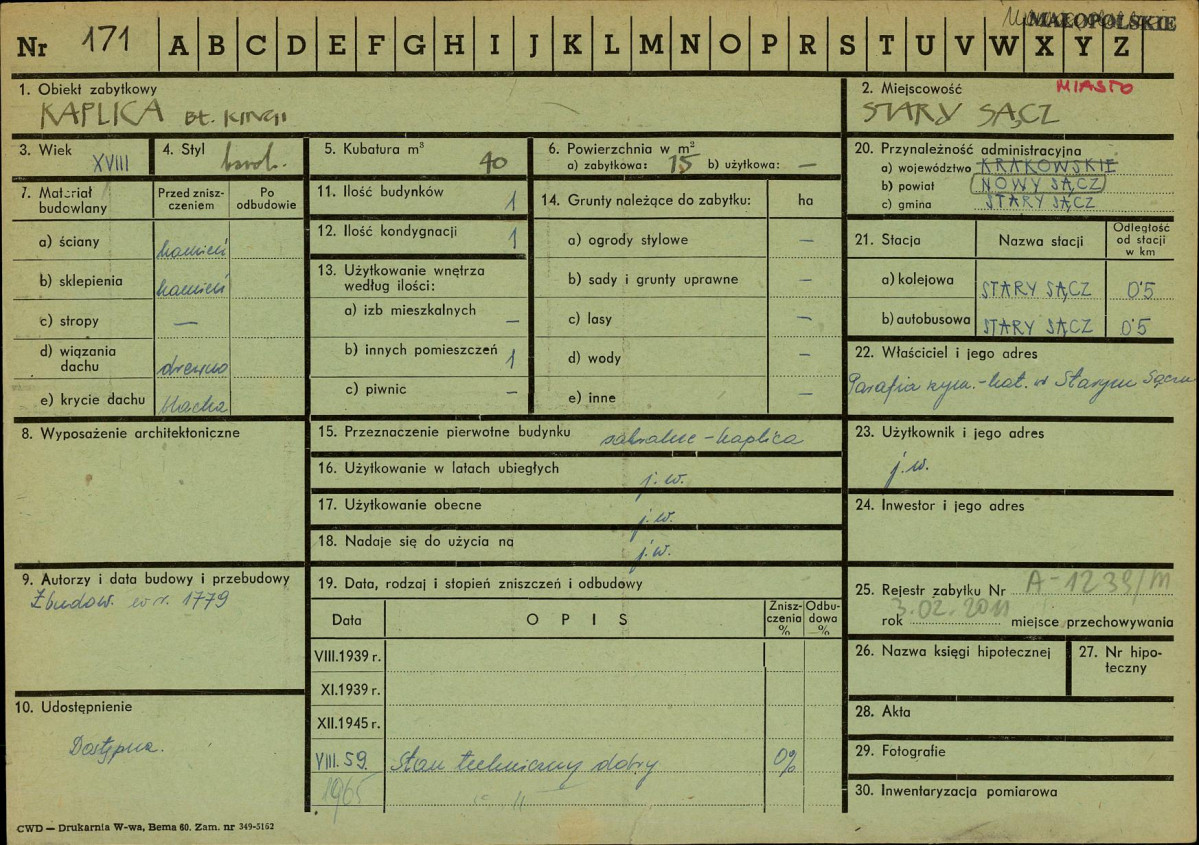 Nr 171 A B C D E F G H I J K L M N O P R S T U V W X Y Z
MAŁOPOLSKIE
1. Obiekt zabytkowy
KAPLICA BŁ. KINGI
2. Miejscowość MIASTO
STARY SĄCZ
3. Wiek XVIII
4. Styl barok.
5. Kubatura m³ 40
6. Powierzchnia w m²
a) zabytkowa: 15 b) użytkowa: —
20. Przynależność administracyjna
a) województwo KRAKOWSKIE
b) powiat NOWY SĄCZ
c) gmina STARY SĄCZ
7. Materiał budowlany
Przed zniszczeniem
Po odbudowie
a) ściany kamień
b) sklepienia kamień
c) stropy —
d) wiązania dachu drewno
e) krycie dachu blacha
11. Ilość budynków 1
12. Ilość kondygnacji 1
13. Użytkowanie wnętrza według ilości:
a) izb mieszkalnych —
b) innych pomieszczeń 1
c) piwnic —
14. Grunty należące do zabytku: ha
a) ogrody stylowe —
b) sady i grunty uprawne —
c) lasy —
d) wody —
e) inne —
21. Stacja Nazwa stacji Odległość od stacji w km
a) kolejowa STARY SĄCZ 0'5
b) autobusowa STARY SĄCZ 0'5
22. Właściciel i jego adres
Parafia rzym.-kat. w Starym Sączu
8. Wyposażenie architektoniczne
15. Przeznaczenie pierwotne budynku sakralne - kaplica
16. Użytkowanie w latach ubiegłych j.w.
17. Użytkowanie obecne j.w.
18. Nadaje się do użycia na j.w.
23. Użytkownik i jego adres
j.w.
24. Inwestor i jego adres
9. Autorzy i data budowy i przebudowy
Zbudow. w r. 1779
19. Data, rodzaj i stopień zniszczeń i odbudowy
Data OPIS Zniszczenia % Odbudowa %
VIII.1939 r.
XI.1939 r.
XII.1945 r.
VIII.59. Stan techniczny dobry 0%
1965 — " —
25. Rejestr zabytku Nr A-1239/M
rok 3.02.2011 miejsce przechowywania
26. Nazwa księgi hipotecznej
27. Nr hipoteczny
10. Udostępnienie
Dostępna.
28. Akta
29. Fotografie
30. Inwentaryzacja pomiarowa
CWD — Drukarnia W-wa, Bema 60. Zam. nr 349-5162